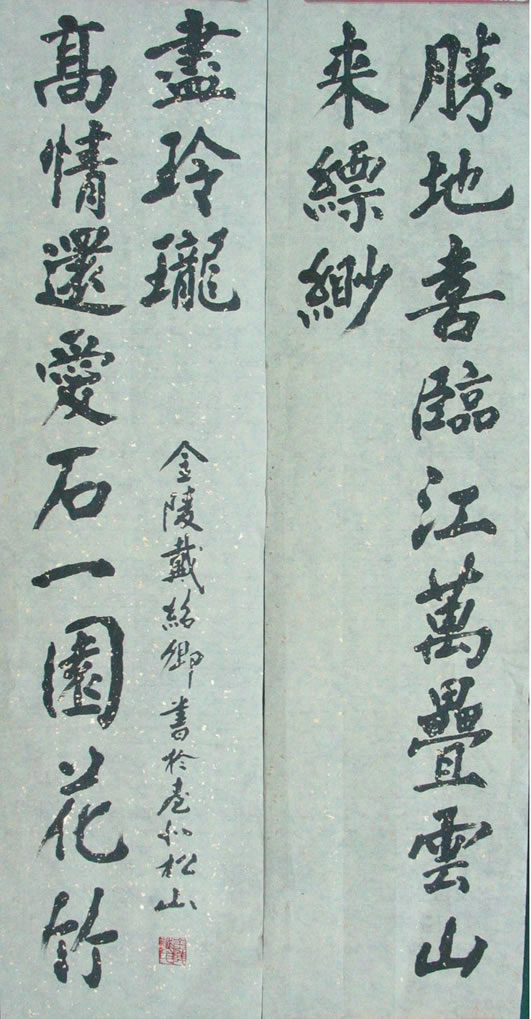 勝地喜臨江萬疊雲山
来縹緲
高情還愛石一園花竹
盡玲瓏
金陵戴紹卿書於臺北松山